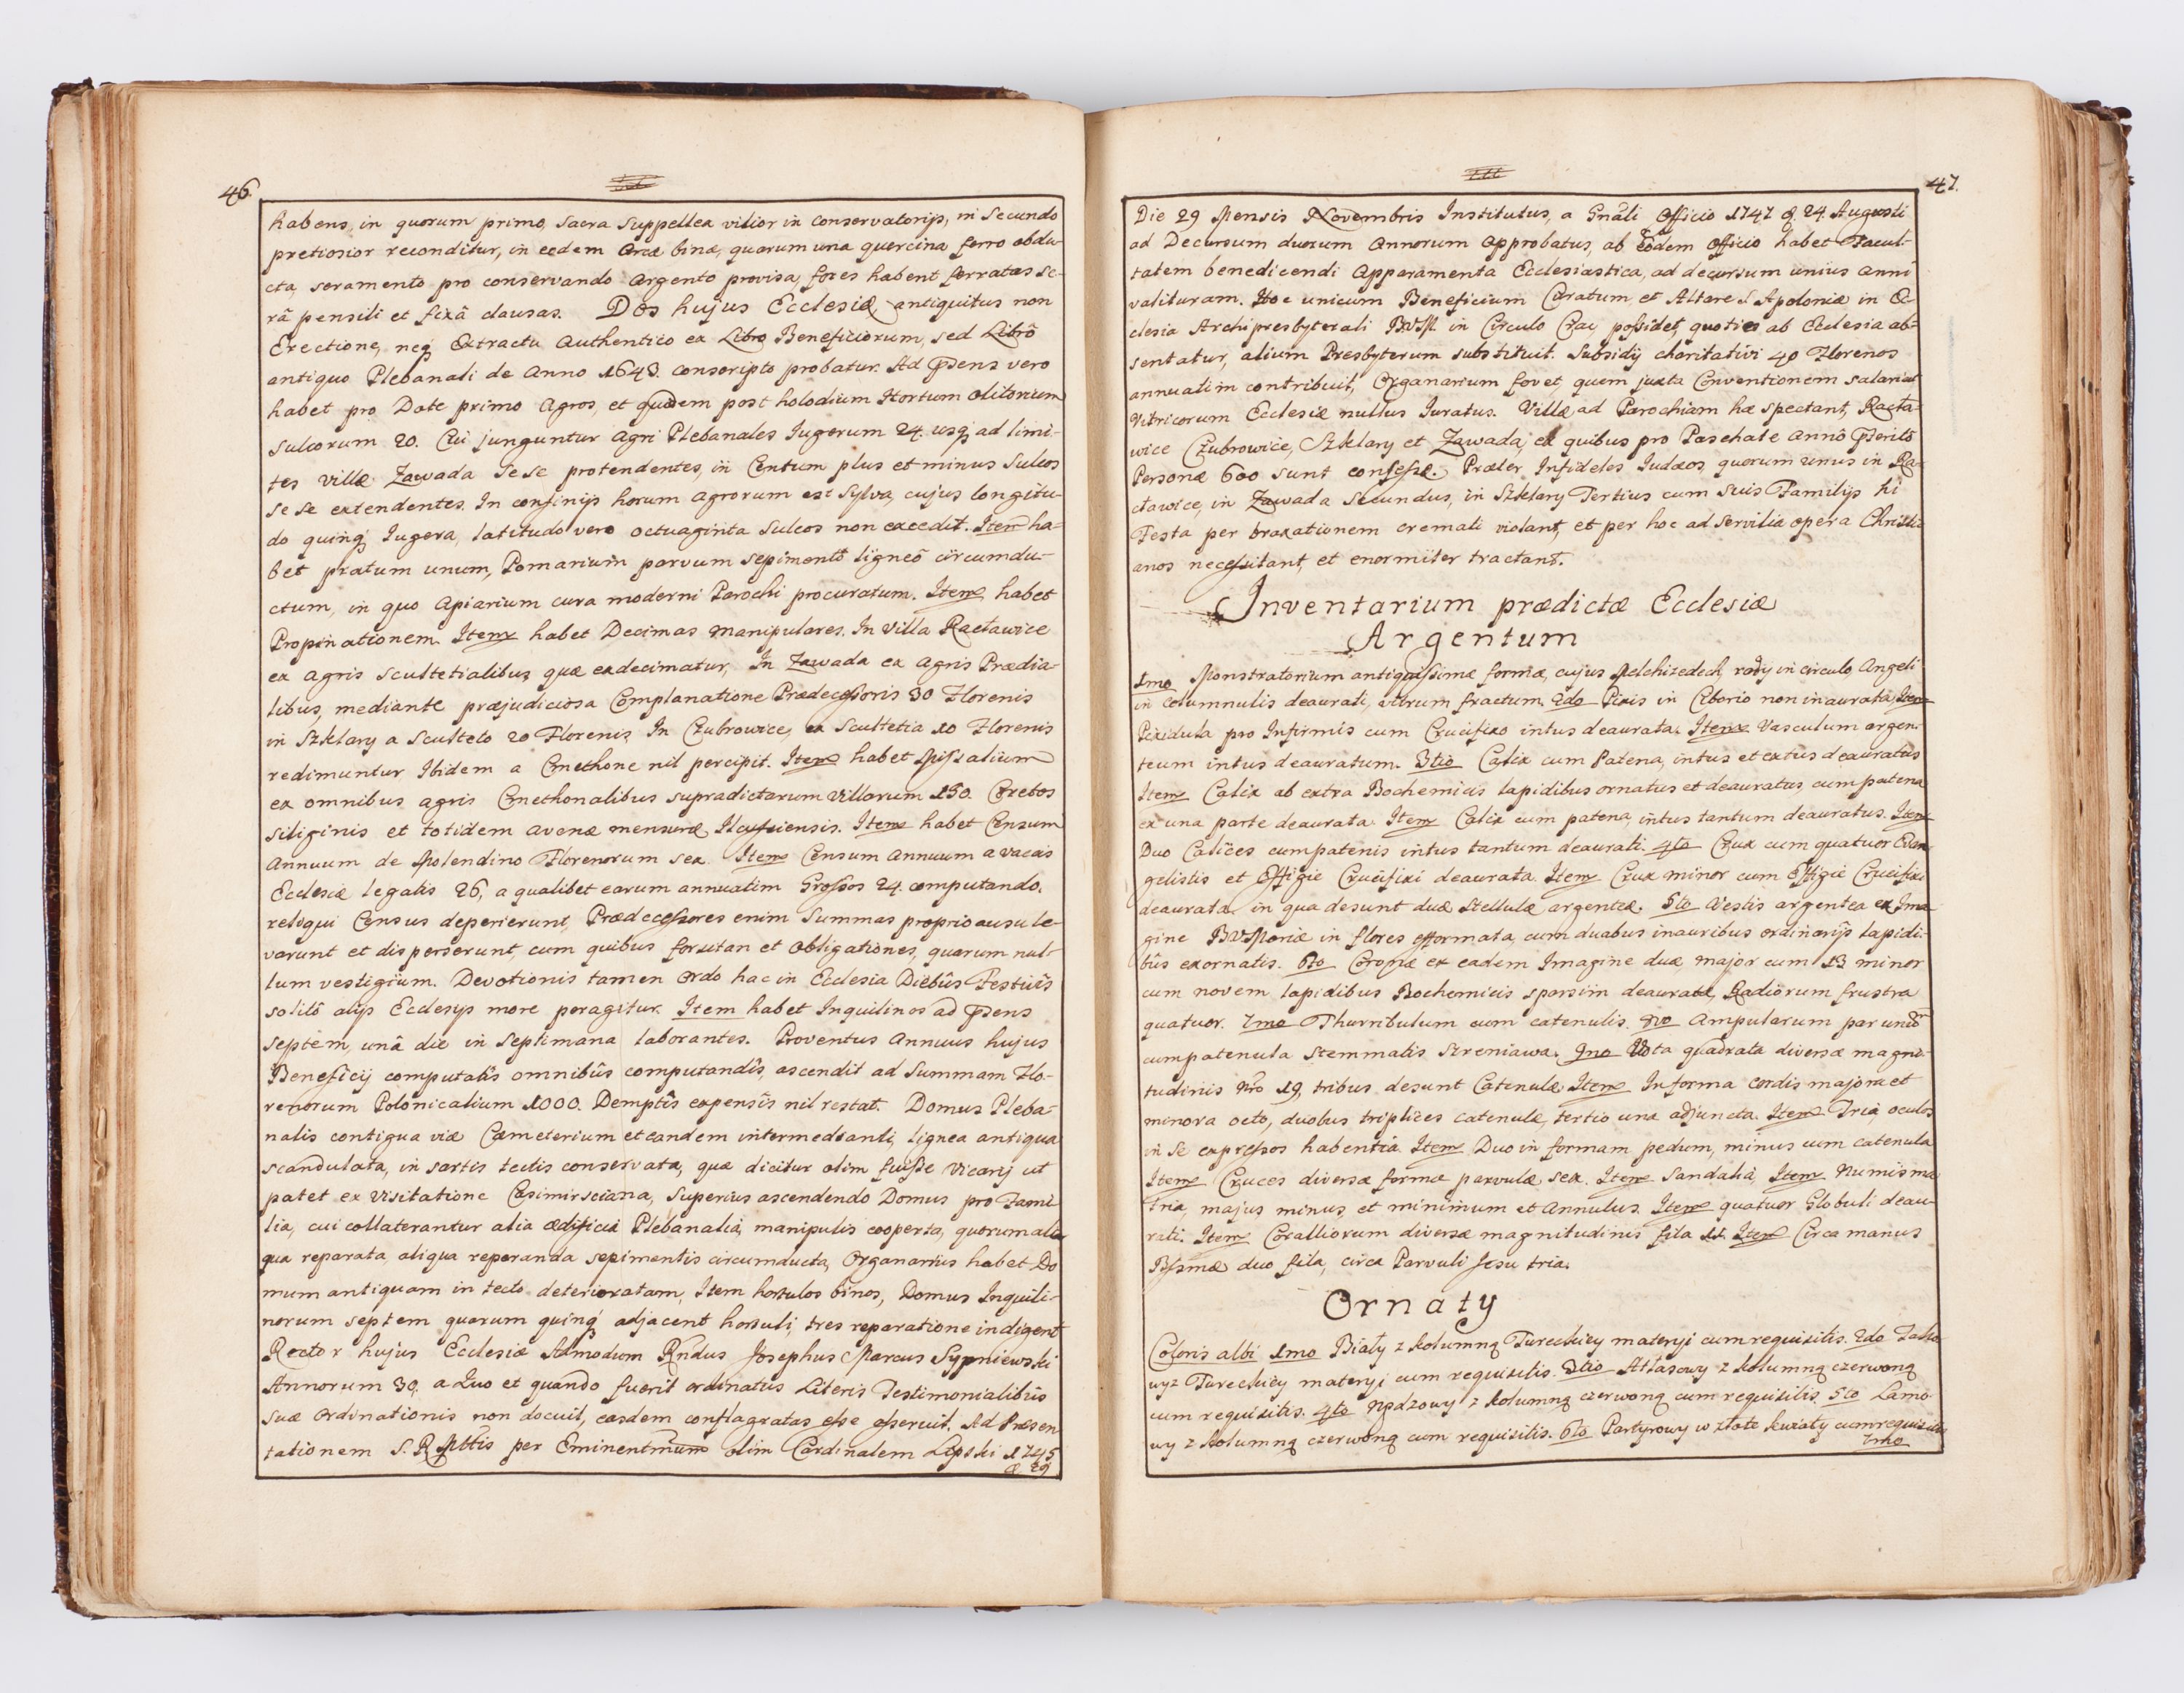 46.
habens, in quorum primo, Sacra Suppellex vilior in conservatorijs, in Secundo
pretiosior reconditur, in eodem Arcæ binæ, quarum una quercina ferro obdu-
cta, seramento pro conservando Argento provisa, fores habent ferratas se-
râ pensili et fixâ clausas. Dos hujus Ecclesiæ, antiquitus non
Erectione, neq; Extractu Authentico ex Libro Beneficiorum, sed Librô
antiquo Plebanali de Anno 1643. conscripto probatur. Ad Psens vero
habet pro Dote primo Agros, et quidem post holodium Hortum Olitorium
Sulcorum 20. Cui junguntur Agri Plebanales Iugerum 24. usq; ad limi-
tes Villæ Zawada Sese protendentes, in Centum plus et minus Sulcos
se se extendentes. In confinijs horum Agrorum est Sylva, cujus longitu-
do quinq; Iugera, latitudo vero octuaginta Sulcos non excedit. Item ha-
bet pratum unum, Pomarium parvum sepimentô ligneô circumdu-
ctum, in quo Apiarium cura moderni Parochi procuratum. Item habet
Propinationem. Item habet Decimas Manipulares. In Villa Racławice
ex Agris Scultetialibus quæ exdecimatur, In Zawada ex Agris Prædia-
libus, mediante præjudiciosa Complanatione Prædecessoris 30 Florenis
in Szklary a Sculteto 20 Florenis In Czubrowice, ex Scultetia 10 Florenis
redimuntur Ibidem a Cmethone nil percipit. Item habet Missalium
ex omnibus agris Cmethonalibus supradictarum Villarum 150. Coretos
siliginis et totidem avenæ mensuræ Ilcusiensis. Item habet Censum
Annuum de Molendino Florenorum sex. Item Censum Annuum a Vaccis
Ecclesiæ legatis 26, a qualibet earum annuatim Grossos 24. computando.
reliqui Census deperierunt, Prædecessores enim Summas proprio ausu le-
varunt et disperserunt, cum quibus forsitan et Obligationes, quarum nul-
lum vestigium. Devotionis tamen Ordo hac in Ecclesia Diebûs Festivîs
solitô alijs Ecclesijs more peragitur. Item habet Inquilinos ad Psens
septem, unâ die in Septimana laborantes. Proventus Annuus hujus
Beneficij computatîs omnibûs computandîs, ascendit ad Summam Flo-
renorum Polonicalium 1000. Demptîs expensîs nil restat. Domus Pleba-
nalis contigua viæ Cæmeterium et eandem intermedianti, lignea antiqua
scandulata, in sartis tectis conservata, quæ dicitur olim fuisse Vicarij ut
patet ex Visitatione Casimirsciana, Superius ascendendo Domus pro Fami
lia, cui collaterantur alia ædificia Plebanalia, manipulis cooperta, quorum ali
qua reparata, aliqua reparanda sepimentis circumducta, Organarius habet Do
mum antiquam in tecto deterioratam, Item hortulos binos, Domus Inquili-
norum septem quarum quinq; adjacent hortuli, tres reparatione indigent
Rector hujus Ecclesiæ Admodum Rndus Josephus Marcus Sypniewski
Annorum 39. a Quo et quando fuerit ordinatus Literis Testimonialibûs
suæ Ordinationis non docuit, easdem conflagratas esse asseruit. Ad Præsen
tationem S. R. Mttis per Eminentmum olim Cardinalem Lipski 1745
d. 29
47.
Die 29 Mensis Novembris Institutus, a Gnâli Officio 1747 d. 24 Augusti
ad Decursum duorum Annorum Approbatus, ab Eodem Officio habet Facul-
tatem benedicendi Apparamenta Ecclesiastica, ad decursum unius Anni
valituram. Hoc unicum Beneficium Curatum, et Altare S Apoloniæ in Ec-
clesia Archipresbyterali BVM. in Circulo Crac possidet, quoties ab Ecclesia ab-
sentatur, alium Presbyterum substituit. Subsidij charitativi 40 Florenos
annuatim contribuit, Organarium fovet, quem juxta Conventionem salariat
Vitricorum Ecclesiæ nullus Iuratus. Villæ ad Parochiam hæ spectant, Racła-
wice Czubrowice, Szklary et Zawada, ex quibus pro Paschate Annô Pterito
Personæ 600 sunt confessæ. Præter Infideles Iudæos, quorum unus in Ra-
cławice, in Zawada Secundus, in Szklary Tertius cum Suis Familijs hi
Festa per braxationem cremati violant, et per hoc ad Servilia opera Christi-
anos necessitant, et enormiter tractant.
Inventarium prædictæ Ecclesiæ
Argentum
1mo Monstratorium antiquissimæ formæ, cujus Melchizedech, radij in circulo, Angeli
in columnulis deaurati, vitrum fractum. 2do Pixis in Ciborio non inaurata, Item
Pixidula pro Infirmis cum Crucifixo intus deaurata. Item Vasculum argen-
teum intus deauratum. 3tio Calix cum Patena, intus et extus deauratus
Item Calix ab extra Bochemicis lapidibus ornatus et deauratus, cum patena
ex una parte deaurata. Item Calix cum patena, intus tantum deauratus. Item
Duo Calices cum patenis intus tantum deaurati. 4to Crux cum quatuor Evan-
gelistis et Effigie Crucifixi deaurata. Item Crux minor cum Effigie Crucifixi
deaurata. in qua desunt duæ Stellulæ argenteæ. 5to Vestis argentea ex Ima
gine BVMariæ in flores efformata, cum duabus inauribus ordinarijs lapidi-
bûs exornatis. 6to Coronæ ex eadem Imagine duæ major cum 13 minor
cum novem lapidibus Bochemicis sparsim deauratæ, Radiorum frustra
quatuor. 7mo Thurribulum cum catenulis. 8vo Ampularum par unum
cum patenula stemmatis Szreniawa. 9no Vota quadrata diversæ magni-
tudinis Nro 19, tribus desunt Catenulæ, Item In forma cordis majora et
minora octo, duobus triplices catenulæ, tertio una adjuncta. Item Tria, oculos
in se expressos habentia. Item Duo in formam pedum, minus cum catenula
Item Cruces diversæ formæ parvulæ sex. Item Sandalia, Item Numisma
tria, majus minus, et minimum et Annulus. Item quatuor Globuli deau-
rati. Item Coralliorum diversæ magnitudinis fila 11. Item Circa manus
BSsmæ duo fila, circa Parvuli Jesu tria.
Ornaty
Coloris albi 1mo Biały z kolumną Tureckiey materyi cum requisitis. 2do Tako
wyż Tureckiey materyi cum requisitis. 3tio Atłasowy z kolumną czerwoną
cum requisitis. 4to Rydzowy z kolumną czerwoną cum requisitis. 5to Lamo
wy z kolumną czerwoną cum requisitis. 6to Partyrowy w złote kwiaty cum requisitis
7mo